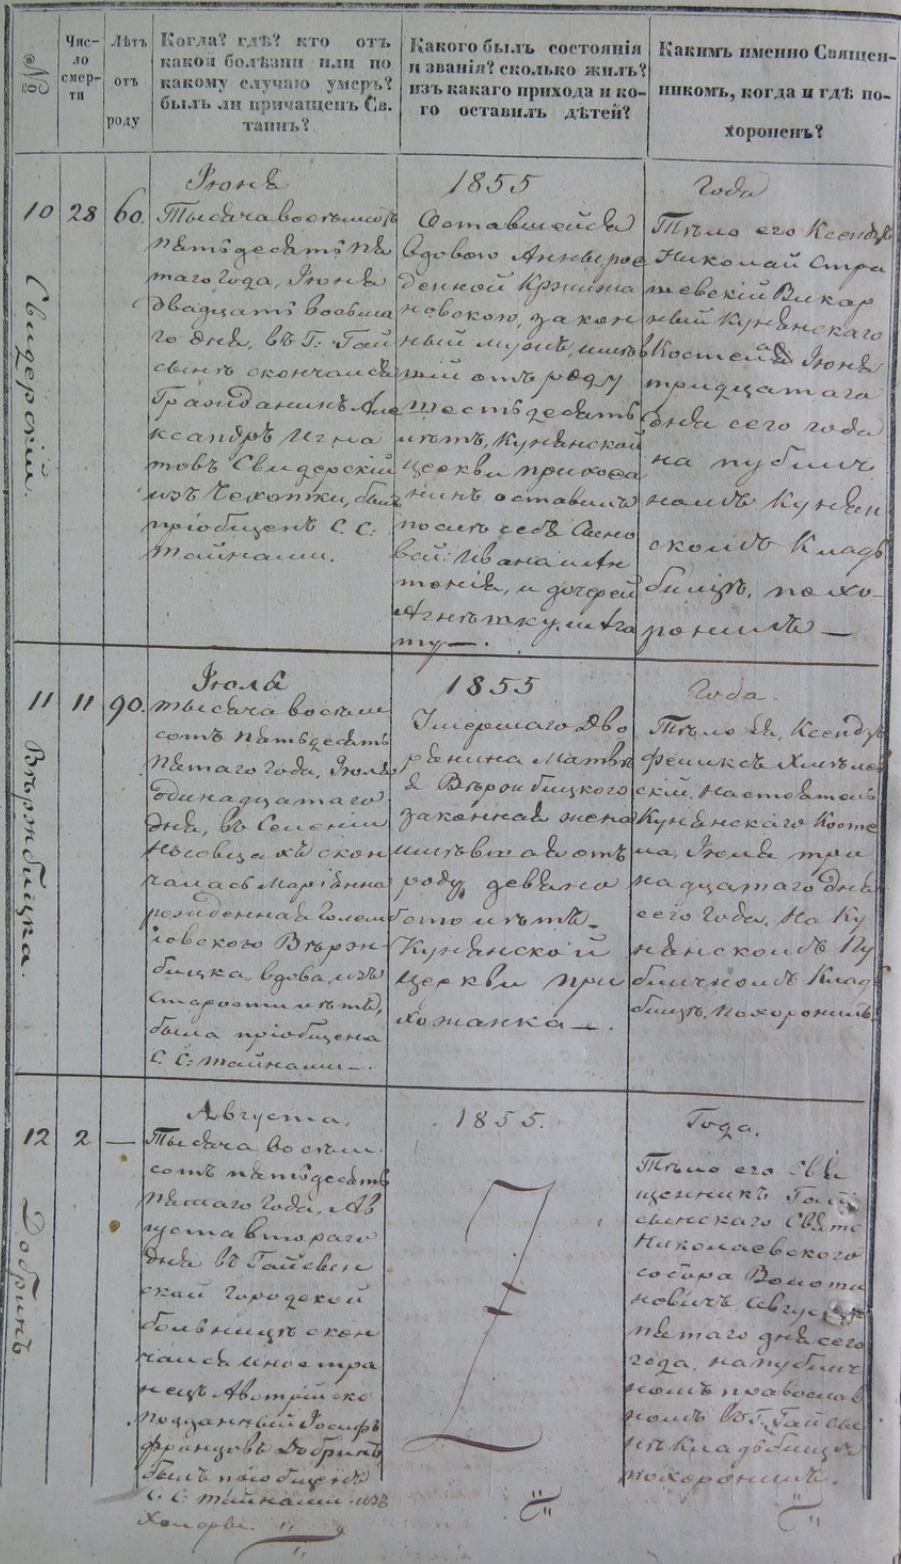 №
Чис-
ло
смер-
ти
Лѣтъ
отъ
роду
Когда? гдѣ? кто отъ
какой болѣзни или по
какому случаю умеръ?
былъ ли причащенъ Св.
таинъ?
Какого былъ состоянія
и званія? сколько жилъ?
изъ какаго прихода и ко-
го оставилъ дѣтей?
Какимъ именно Священ-
никомъ, когда и гдѣ по-
хороненъ?
10
Свидерскій.
28
60.
Іюня
Тысяча восемьсотъ
пятьдесятъ пя
таго года, Іюня
двадцать восьма
го дня, въ Г: Гай
сынѣ скончался
Гражданинъ Але
ксандръ Игна
товъ Свидерскій
изъ Чехотки, былъ
пріобщенъ С. С:
тайнами.
1855
Оставшейся
вдовою Анны рож
денной Кржижа
новскою, закон
ный мужъ, имѣв
шій отъ роду
шестьдесятъ
лѣтъ, Кунянской
церкви прихожа
нинъ оставилъ
послѣ себя Сыно
вей: Ивана и Ан
тонія, и дочерей
Агнѣшку и Ага
ту—.
Года
Тѣло его Ксендзъ
Николай Стра
шевскій Викар
ный Кунянскаго
Костела Іюня
тридцатаго
дня сего года
на публич
номъ Кунян
скомъ Кладь
бищѣ, похо-
ронилъ —
11
Вѣржбицка.
11
90.
Іюля
тысяча восем
сотъ пятьдесятъ
пятаго года, Іюля
одинадцатаго
дня, въ Селеніи
Носовцахъ скон
чалась Маріянна
рожденная Голем
біовскою Вѣрж
бицка, вдова, изъ
старости лѣтъ,
была пріобщена
С. С: тайнами—.
1855
Умершаго Дво
рянина Матвѣ
я Вѣржбицкого
законная жена
имѣвшая отъ
роду девяно
сто лѣтъ-
Кунянской
церкви при
хожанка—.
Года.
Тѣло ея, Ксендзъ
Феликсъ Хмѣлев
скій, настоятель
Кунянскаго Косте
ла, Іюля три
надцатаго дня
сего года, на Ку
нянскомъ Пу
бличномъ Кладь
бищѣ, похоронилъ.
12
Добринъ
2
—
Августа.
Тысяча восем
сотъ пятьдесятъ
пятаго года, Ав
густа втораго
дня въ Гайсын
ской городской
больницѣ скон
чался иностра
нецъ Австрійско
подданный Іосифъ
Францовъ Добринъ,
былъ пріобщенъ
С. С: тайнами изъ
Холеры.
1855.
Года.
Тѣло его Свя
щенникъ Гай
сынскаго Свято
Николаевского
собора Волоти
новичъ, Августа
пятаго дня сего
года, на публич
номъ православ
номъ въ Г. Гайсы
нѣ Кладьбищѣ
похоронилъ.